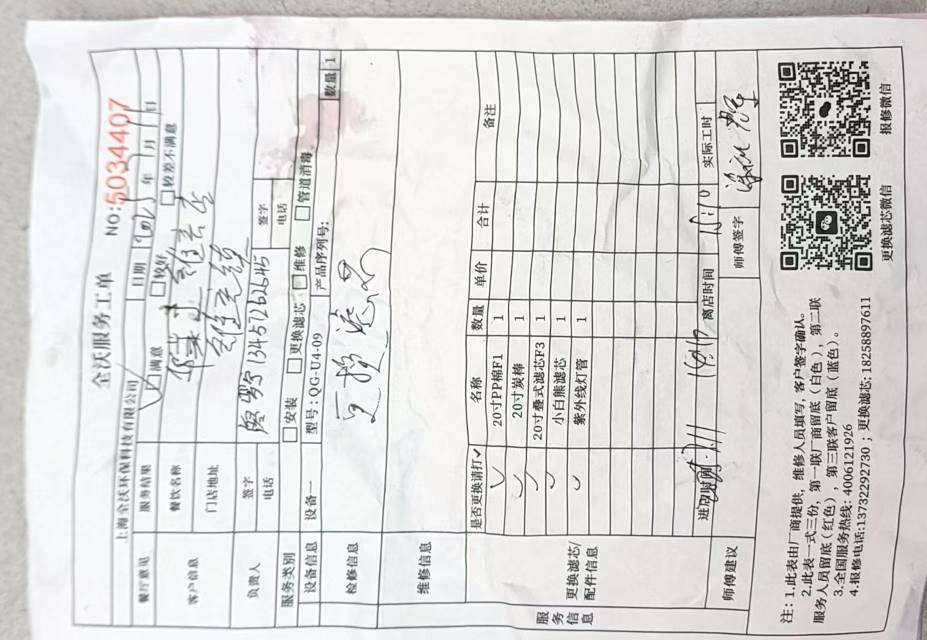 全沃服务工单
NO:5034407
上海全沃环保科技有限公司
日期 年 月 日
餐厅意见 服务结果 满意 较好 较差不满意
客户信息 餐饮名称
门店地址
负责人 签字 签字
电话 13457262645 电话
服务类别 安装 更换滤芯 维修 管道消毒
设备信息 设备一 型号：QG-U4-09 产品序列号： 数量 1
检修信息 更换滤芯
维修信息
服务信息
更换滤芯/配件信息
是否更换请打✓ 名称 数量 单价 合计 备注
✓ 20寸PP棉F1 1
✓ 20寸炭棒 1
✓ 20寸叠式滤芯F3 1
✓ 小白熊滤芯 1
✓ 紫外线灯管 1
进店时间 离店时间 实际工时
师傅建议 师傅签字
注：1.此表由厂商提供，维修人员填写，客户签字确认。
2.此表一式三份，第一联厂商留底（白色），第二联
服务人员留底（红色），第三联客户留底（蓝色）。
3.全国服务热线：4006121926
4.报修电话:13732292730；更换滤芯:18258897611
更换滤芯微信
报修微信